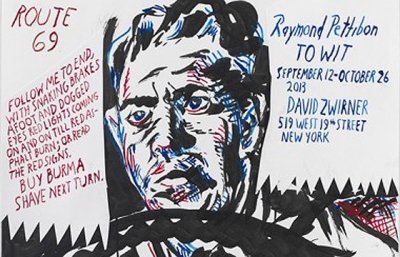 ROUTE
69
FOLLOW ME TO END,
WITH SNAKING BRAKES
AFOOT AND DOGGED
EYES RED LIGHTS COMING
ON AND ON TILL RED AS-
PHALT BURN; OR READ
THE RED SIGNS.
BUY BURMA
SHAVE NEXT TURN.
Raymond Pettibon
TO WIT
SEPTEMBER 12-OCTOBER 26
2013
DAVID ZWIRNER
519 WEST 19th STREET
NEW YORK